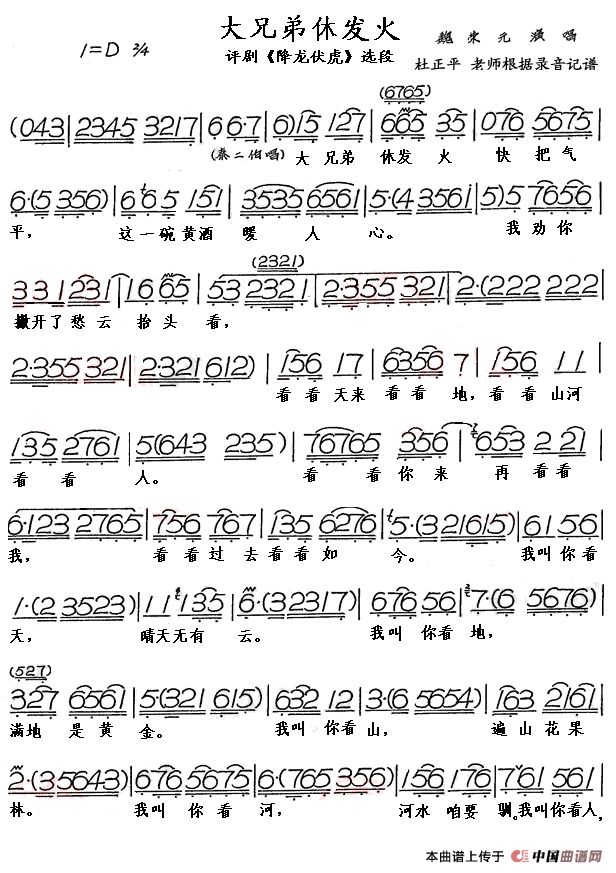 大兄弟休发火
1=D 2/4
评剧《降龙伏虎》选段
魏荣元 演唱
杜正平 老师根据录音记谱
(6765)
(043 | 2345 3217 | 6 6·7 | 6)15 127 | 665 35 | 076 5675 |
(秦二伯唱) 大兄弟 休发 火 快 把气
6·(5 356) | 665 151 | 3535 6561 | 5·(4 3561 | 5)5 7656 |
平， 这一碗黄酒 暖 人 心。 我劝你
(2321)
331 231 | 16 65 | 53 2321 | 2·355 321 | 2·(222 222 |
撇开了愁云 抬头 看，
2·355 321 | 2·321 612) | 156 17 | 6356 7 | 156 11 |
看看天来看看 地，看看山河
135 2761 | 5(643 235) | 76765 356 | 653 221 |
看 看 人。 看 看你来 再看看
6·123 2765 | 756 767 | 135 6276 | 5·(321615) | 61 56 |
我， 看看过去看看如 今。 我叫你看
1·(23523) | 11 135 | 6·(32317) | 676 56 | 7·(6 5676) |
天， 晴天无有 云。 我叫 你看地，
(527)
327 6561 | 5·(321 615) | 632 12 | 3·(6 5654) | 163 2161 |
满地 是黄 金。 我叫 你看山， 遍山花果
2·(35643) | 676 5675 | 6·(765 356) | 156 176 | 7 561 |
林。 我叫 你看 河， 河水 咱要 驯。我叫你看人，
本曲谱上传于 中国曲谱网